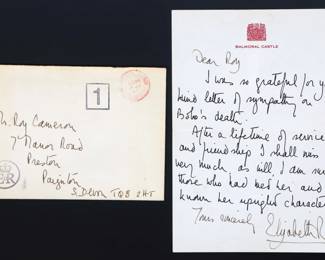 1
Mr. Roy Cameron
7 Manor Road
Preston
Paignton
S. Devon TQ3 2HS
E R
BALMORAL CASTLE
Dear Roy
I was so grateful for your
kind letter of sympathy on
Bobo's death.
After a lifetime of service
and friendship I shall miss
very much as will, I am sure
those who had met her and
known her upright character
Yours sincerely
Elizabeth R